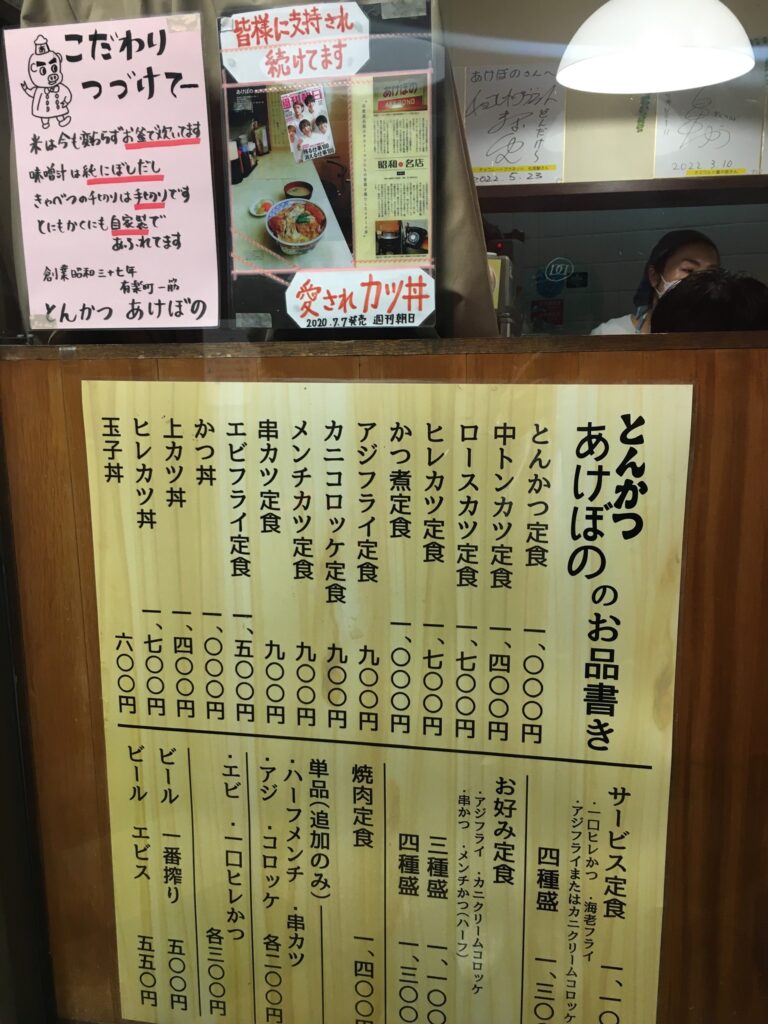 こだわり
つづけてー
米は今も変わらずお釜で炊いてます
味噌汁は純にぼしだし
きゃべつの千切りは手切りです
とにもかくにも自家製で
あふれてます
創業昭和三十七年
有楽町一筋
とんかつ あけぼの
皆様に支持され
続けてます
あけぼの
週刊朝日
あけぼの
AKEBONO
昭和の名店
愛されカツ丼
2020.7.7発売 週刊朝日
あけぼのさんへ
どんだけ〜
2022.5.23
2022.3.10
101
とんかつ
あけぼののお品書き
とんかつ定食 一、〇〇〇円
中トンカツ定食 一、四〇〇円
ロースカツ定食 一、七〇〇円
ヒレカツ定食 一、七〇〇円
かつ煮定食 一、〇〇〇円
アジフライ定食 九〇〇円
カニコロッケ定食 九〇〇円
メンチカツ定食 九〇〇円
串カツ定食 九〇〇円
エビフライ定食 一、五〇〇円
かつ丼 一、〇〇〇円
上カツ丼 一、四〇〇円
ヒレカツ丼 一、七〇〇円
玉子丼 六〇〇円
サービス定食 一、一〇
・一口ヒレかつ ・海老フライ
・アジフライまたはカニクリームコロッケ
四種盛 一、三〇
お好み定食
・アジフライ ・カニクリームコロッケ
・串かつ ・メンチかつ(ハーフ)
三種盛 一、一〇〇
四種盛 一、三〇〇
焼肉定食 一、四〇〇
単品(追加のみ)
・ハーフメンチ ・串カツ
・アジ ・コロッケ 各二〇〇円
・エビ ・一口ヒレかつ 各三〇〇円
ビール 一番搾り 五〇〇円
ビール エビス 五五〇円